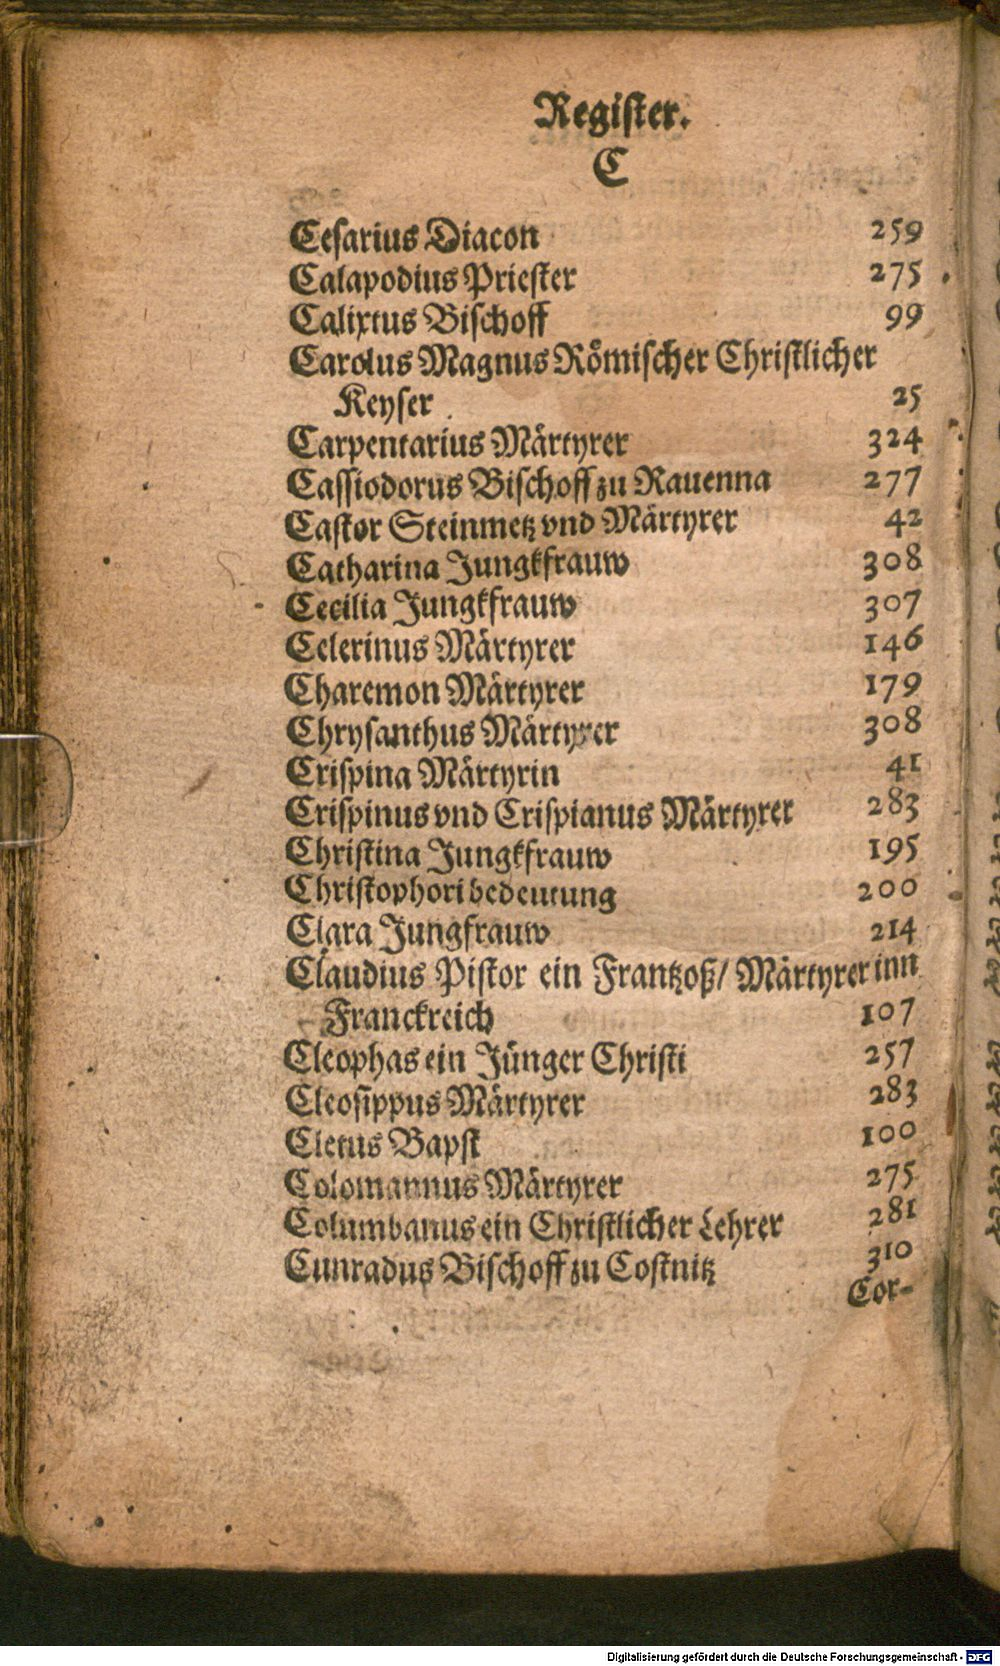 Register.
C
Cesarius Diacon 259
Calapodius Priester 275
Calixtus Bischoff 99
Carolus Magnus Römischer Christlicher
Keyser 25
Carpentarius Märtyrer 324
Cassiodorus Bischoff zu Rauenna 277
Castor Steinmetz vnd Märtyrer 42
Catharina Jungkfrauw 308
Cecilia Jungkfrauw 307
Celerinus Märtyrer 146
Charemon Märtyrer 179
Chrysanthus Märtyrer 308
Crispina Märtyrin 41
Crispinus vnd Crispianus Märtyrer 283
Christina Jungkfrauw 195
Christophori bedeutung 200
Clara Jungfrauw 214
Claudius Pistor ein Frantzoß/ Märtyrer inn
Franckreich 107
Cleophas ein Jünger Christi 257
Cleosippus Märtyrer 283
Cletus Bapst 100
Colomannus Märtyrer 275
Columbanus ein Christlicher Lehrer 281
Cunradus Bischoff zu Costnitz 310
Cor-
Digitalisierung gefördert durch die Deutsche Forschungsgemeinschaft - DFG